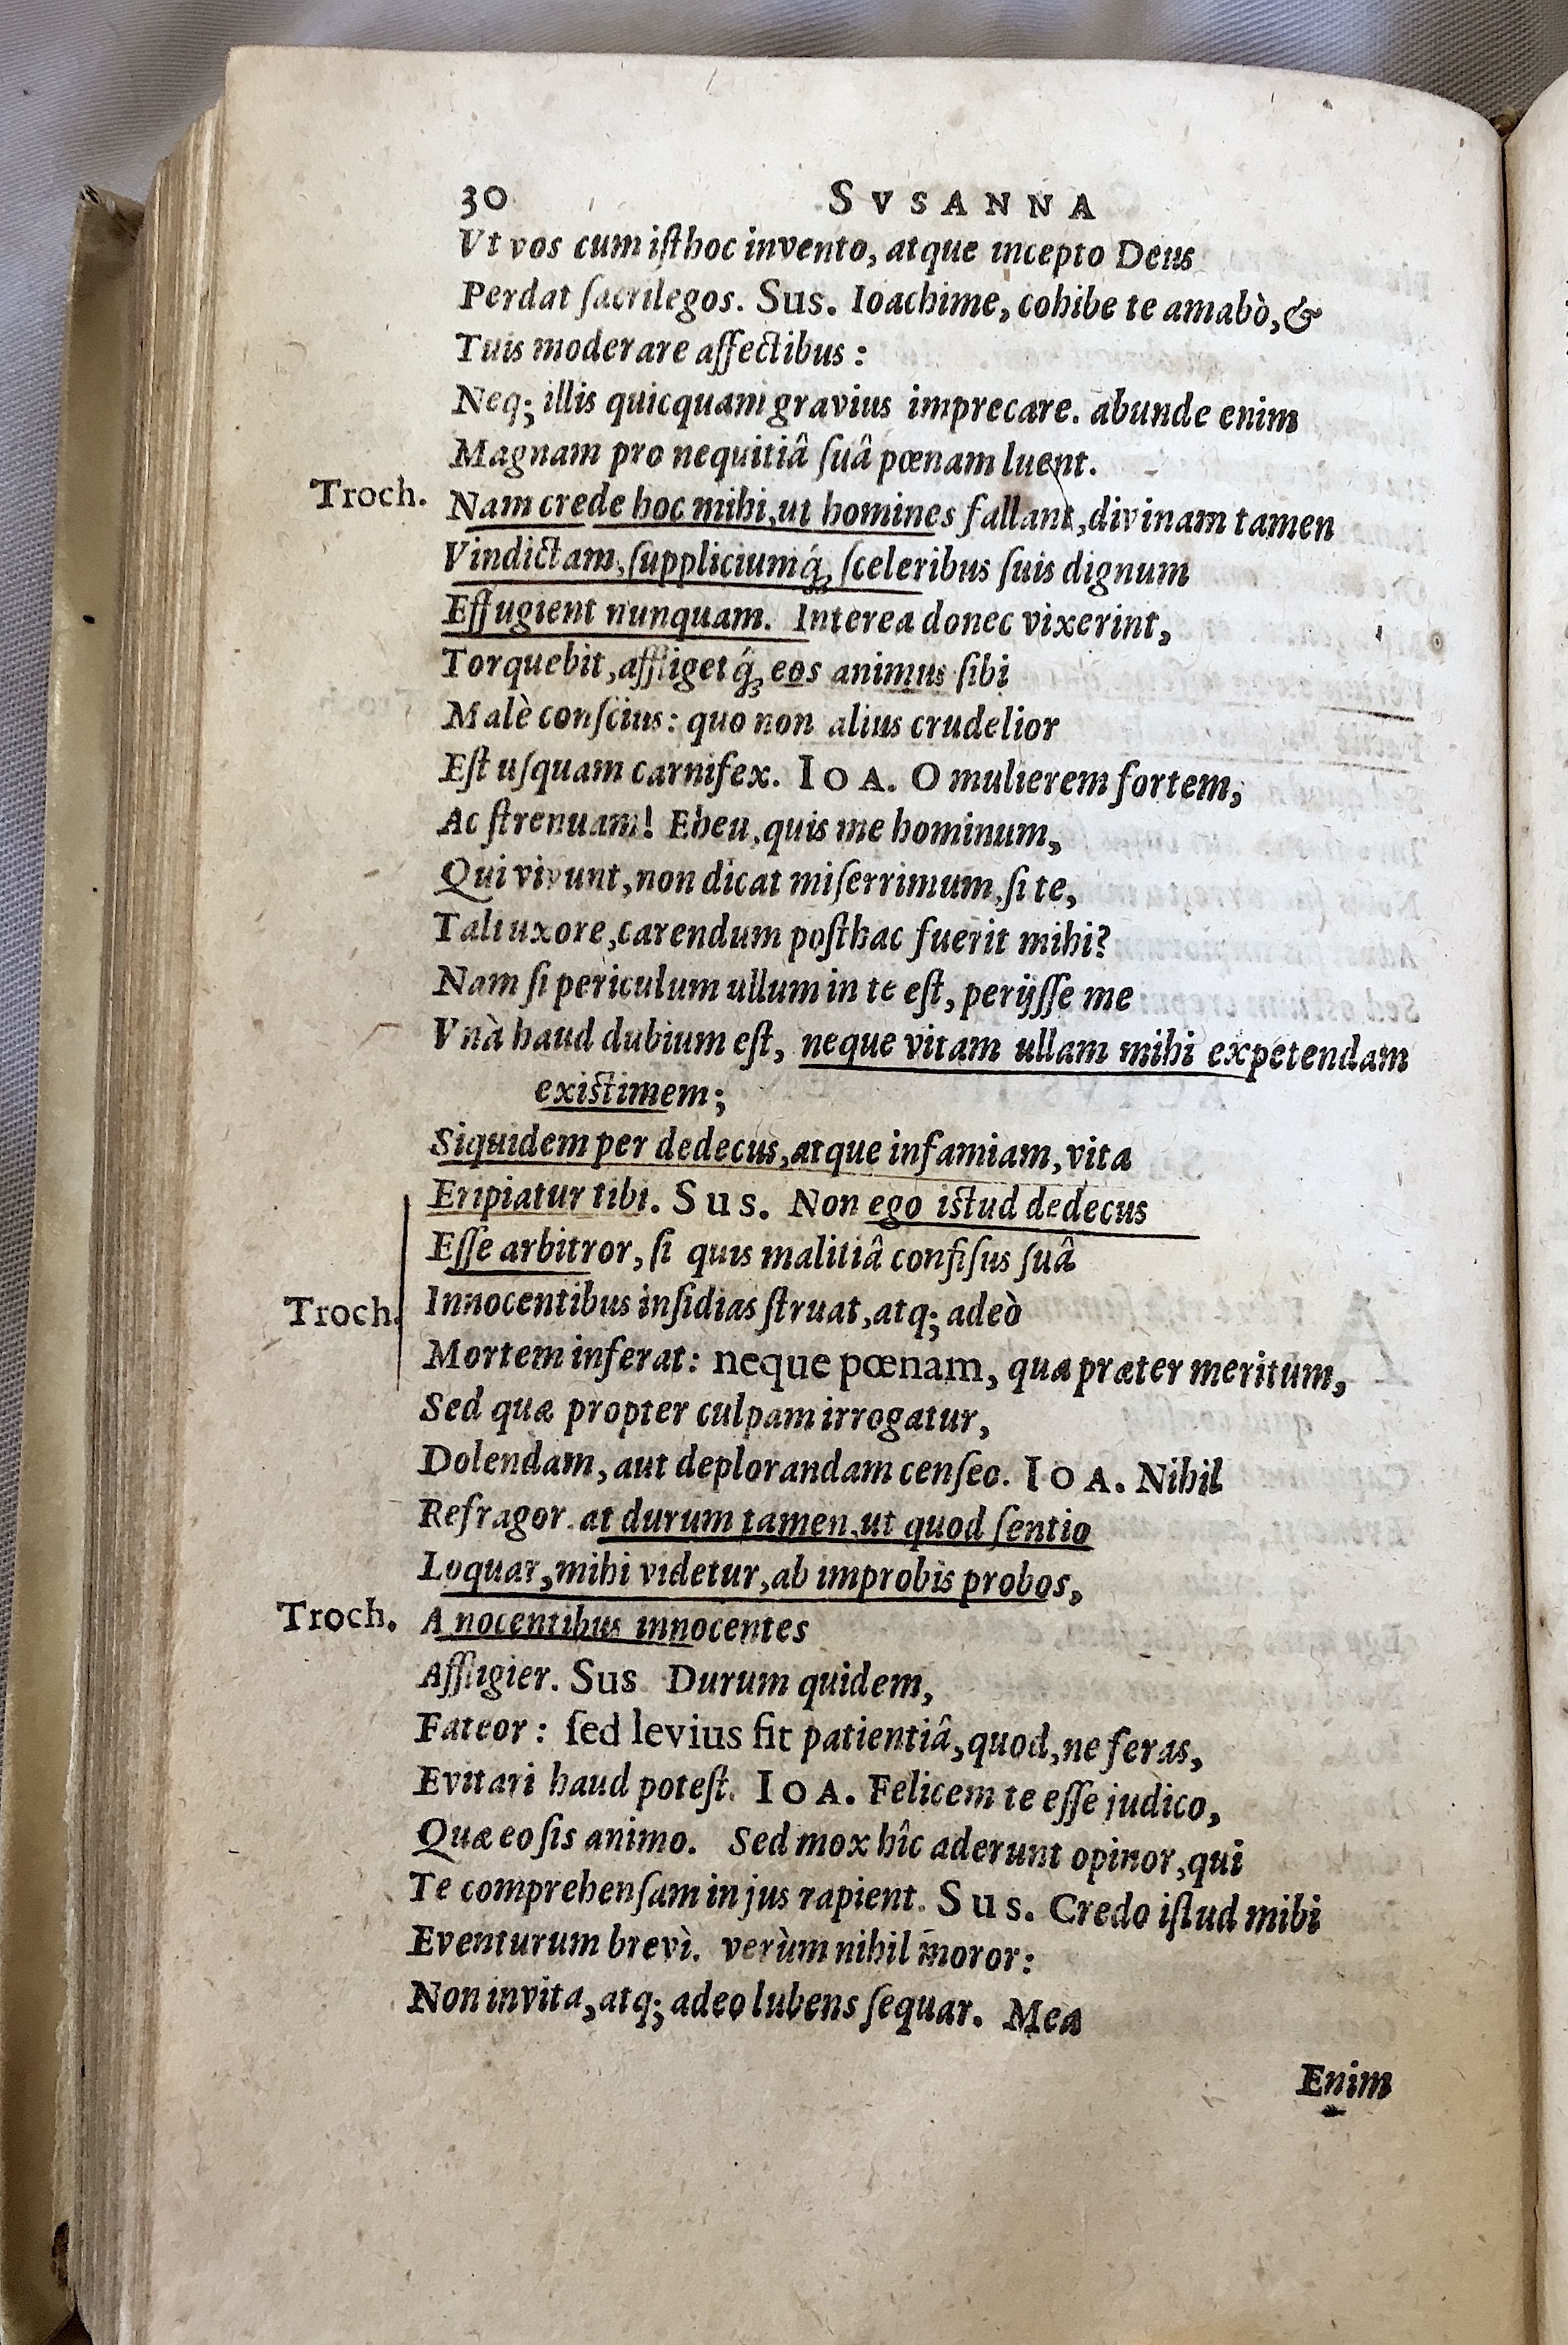 30 SVSANNA
Vt vos cum iſthoc invento, atque incepto Deus
Perdat ſacrilegos. Sus. Ioachime, cohibe te amabò, &
Tuis moderare affectibus:
Neq; illis quicquam gravius imprecare. abunde enim
Magnam pro nequitiâ ſuâ pœnam luent.
Troch. Nam crede hoc mihi, ut homines fallant, divinam tamen
Vindictam, ſuppliciumq́; ſceleribus ſuis dignum
Effugient nunquam. Interea donec vixerint,
Torquebit, affligetq́; eos animus ſibi
Malè conſcius: quo non alius crudelior
Eſt uſquam carnifex. IOA. O mulierem fortem,
Ac ſtrenuam! Eheu, quis me hominum,
Qui vivunt, non dicat miſerrimum, ſi te,
Tali uxore, carendum poſthac fuerit mihi?
Nam ſi periculum ullum in te eſt, perijſſe me
Vnà haud dubium eſt, neque vitam ullam mihi expetendam
exiſtimem;
Siquidem per dedecus, atque infamiam, vita
Eripiatur tibi. Sus. Non ego iſtud dedecus
Eſſe arbitror, ſi quis malitiâ confiſus ſuâ
Troch. Innocentibus inſidias ſtruat, atq; adeò
Mortem inferat: neque pœnam, quæ præter meritum,
Sed quæ propter culpam irrogatur,
Dolendam, aut deplorandam cenſeo. IOA. Nihil
Refragor. at durum tamen, ut quod ſentio
Loquar, mihi videtur, ab improbis probos,
Troch. A nocentibus innocentes
Affligier. Sus Durum quidem,
Fateor: ſed levius fit patientiâ, quod, ne feras,
Evitari haud poteſt. IOA. Felicem te eſſe judico,
Quæ eo ſis animo. Sed mox hîc aderunt opinor, qui
Te comprehenſam in jus rapient. Sus. Credo iſtud mihi
Eventurum brevì. verùm nihil moror:
Non invita, atq; adeo lubens ſequar. Mea
Enim